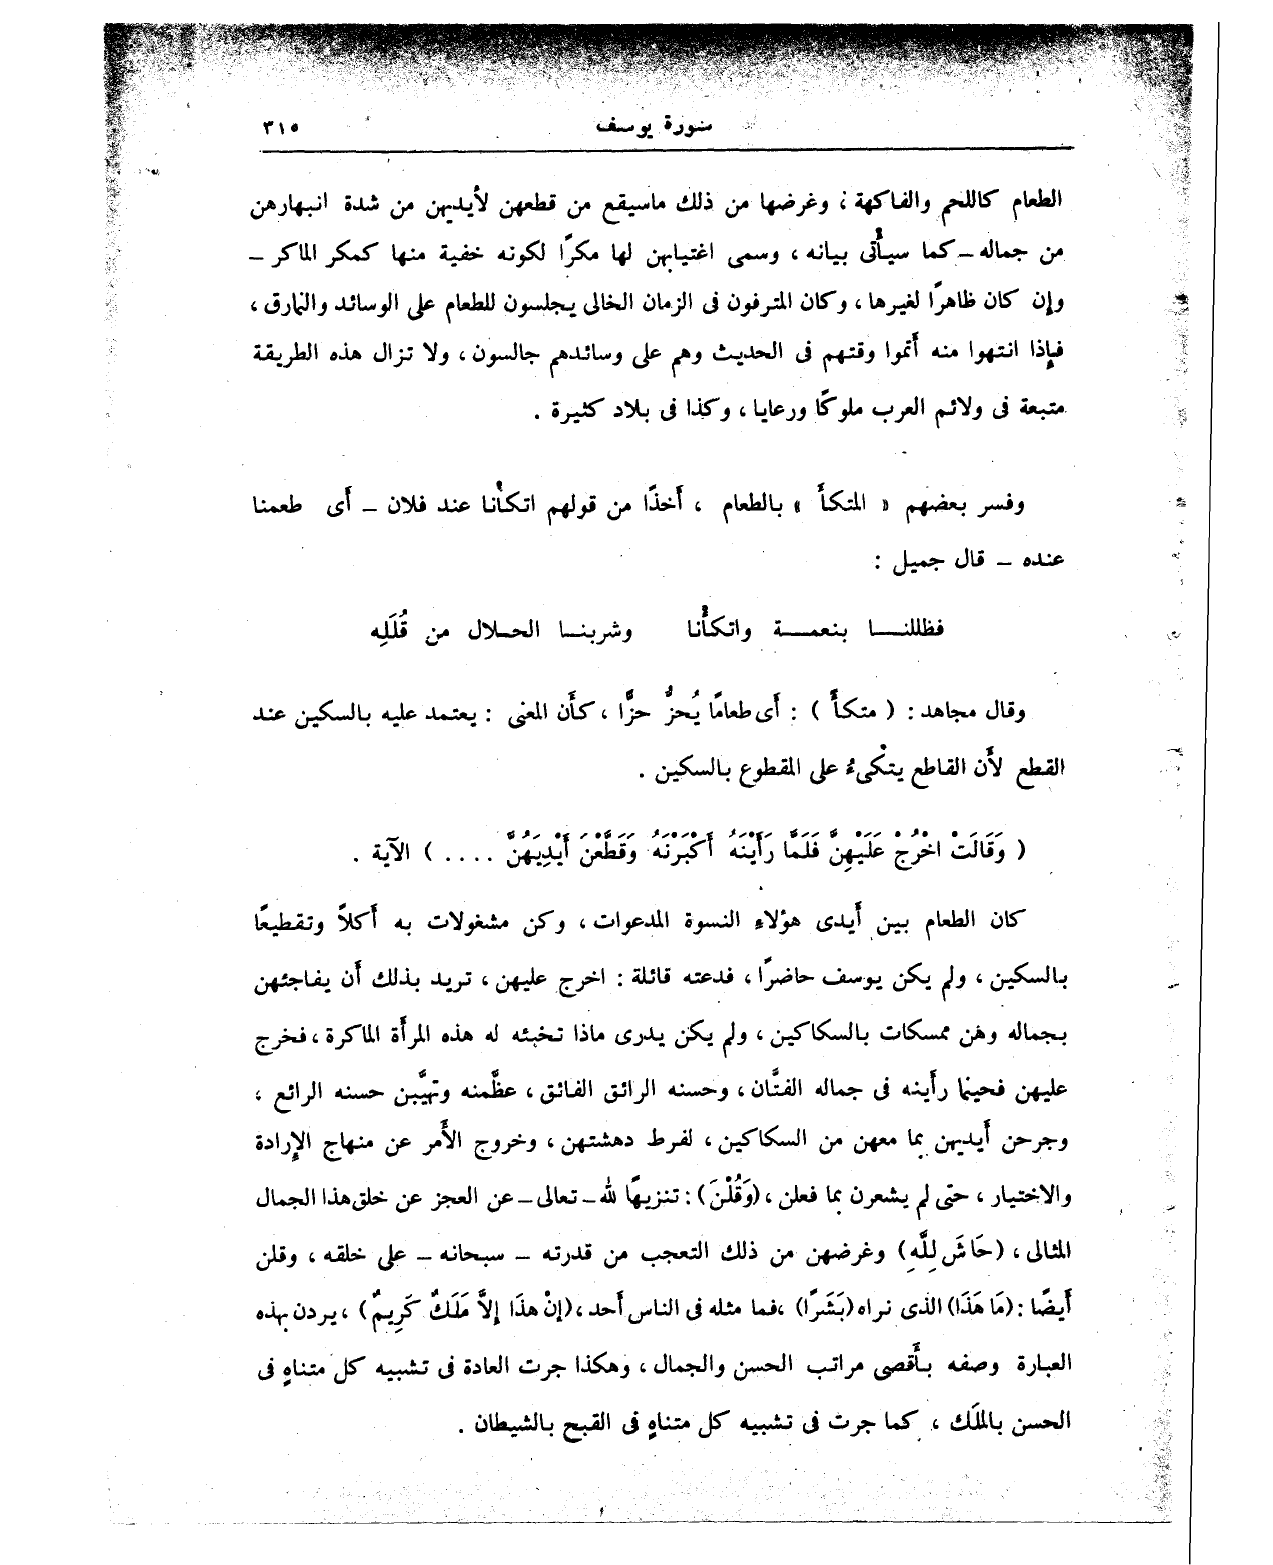 سورة يوسف ٣١٥
الطعام كاللحم والفاكهة ، وغرضها من ذلك ماسيقع من قطعهن لأيديهن من شدة انبهارهن
من جماله – كما سيأْتى بيانه ، وسمى اغتيابهن لها مكرًا لكونه خفية منها كمكر الماكر –
وإن كان ظاهرًا لغيرها ، وكان المترفون فى الزمان الخالى يجلسون للطعام على الوسائد والنمارق ،
فإذا انتهوا منه أتموا وقتهم فى الحديث وهم على وسائدهم جالسون ، ولا تزال هذه الطريقة
متبعة فى ولائم العرب ملوكًا ورعايا ، وكذا فى بلاد كثيرة .
وفسر بعضهم « المتكأَ » بالطعام ، أخذًا من قولهم اتكأْنا عند فلان – أى طعمنا
عنده – قال جميل :
فظللنــا بنعمــة واتكأْنا وشربنـا الحـلال من قُلَلِه
وقال مجاهد : ( متكأً ) : أى طعامًا يُحزُّ حزًّا ، كأن المعنى : يعتمد عليه بالسكين عند
القطع لأن القاطع يتْكىءُ على المقطوع بالسكين .
( وَقَالَتْ اخْرُجْ عَلَيْهِنَّ فَلَمَّا رَأَيْنَهُ أَكْبَرْنَهُ وَقَطَّعْنَ أَيْدِيَهُنَّ .... ) الآية .
كان الطعام بين أيدى هؤلاءِ النسوة المدعوات ، وكن مشغولات به أكلاً وتقطيعًا
بالسكين ، ولم يكن يوسف حاضرًا ، فدعته قائلة : اخرج عليهن ، تريد بذلك أن يفاجئهن
بجماله وهن ممسكات بالسكاكين ، ولم يكن يدرى ماذا تخبئه له هذه المرأة الماكرة ، فخرج
عليهن فحينما رأينه فى جماله الفتَّان ، وحسنه الرائق الفائق ، عظَّمنه وتهيَّبن حسنه الرائع ،
وجرحن أيديهن بما معهن من السكاكين ، لفرط دهشتهن ، وخروج الأمر عن منهاج الإرادة
والاختيار ، حتى لم يشعرن بما فعلن ، (وَقُلْنَ) : تنزيهًا لله – تعالى – عن العجز عن خلق هذا الجمال
المثالى ، (حَاشَ لِلَّهِ) وغرضهن من ذلك التعجب من قدرته – سبحانه – على خلقه ، وقلن
أيضًا : (مَا هَذَا) الذى نراه (بَشَرًا) ، فما مثله فى الناس أحد ، (إِنْ هذَا إِلَّا مَلَكٌ كَرِيمٌ) ، يردن بهذه
العبارة وصفه بأَقصى مراتب الحسن والجمال ، وهكذا جرت العادة فى تشبيه كل متناهٍ فى
الحسن بالملَك ، كما جرت فى تشبيه كل متناهٍ فى القبح بالشيطان .